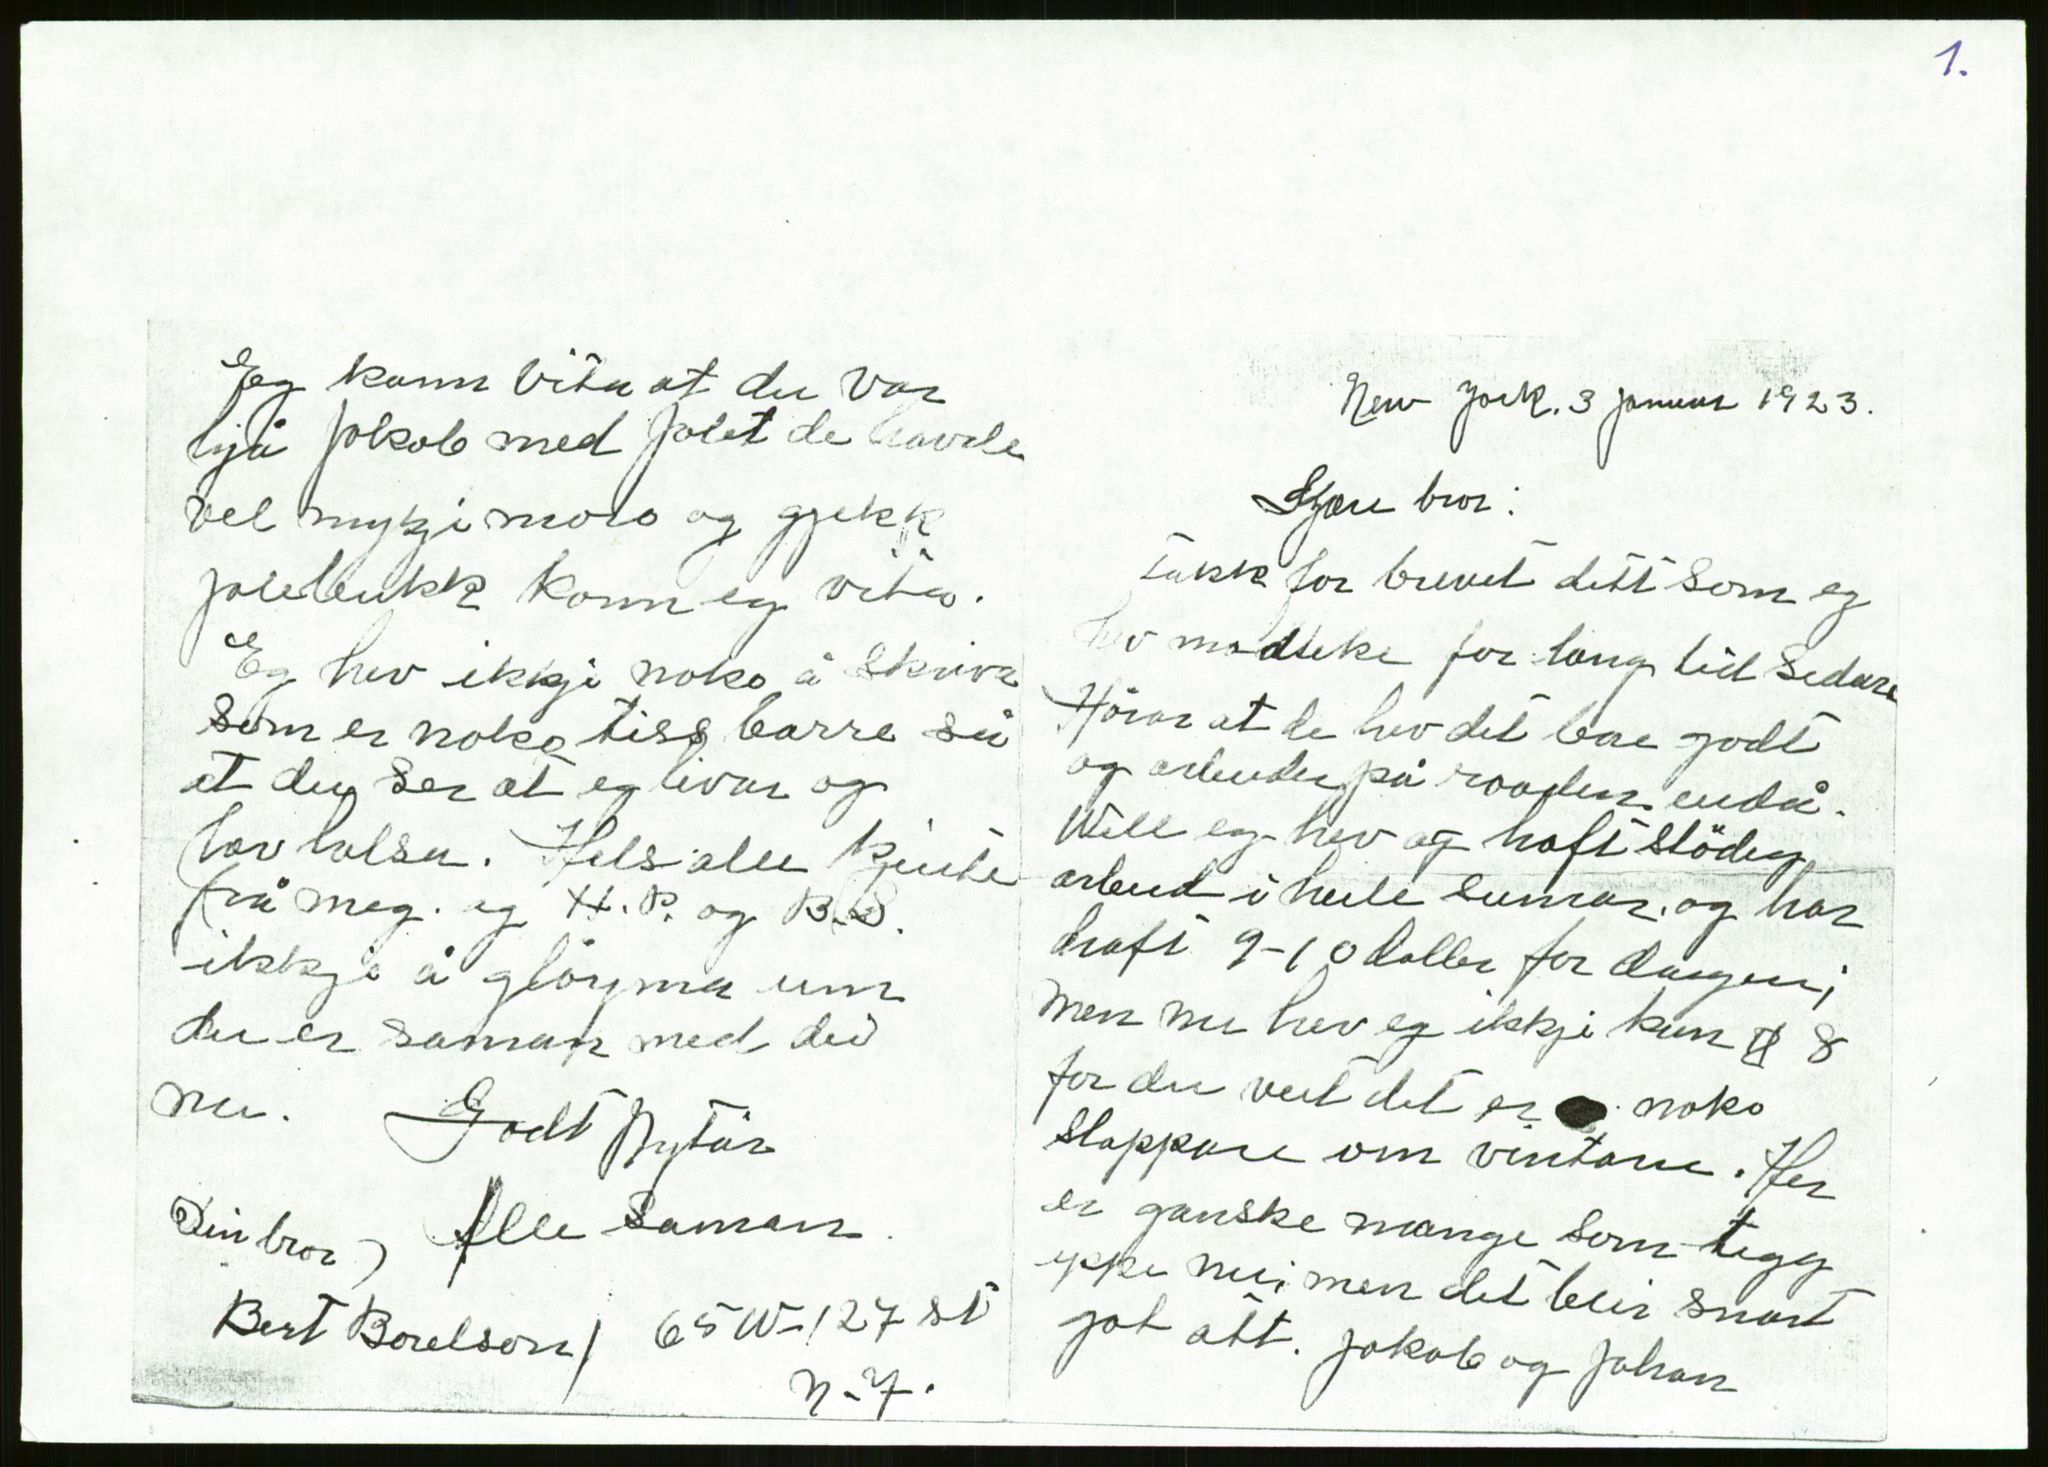 1.
New York. 3 januar 1923.
Kjære bror:
Takk for brevet ditt som eg
hev modteke for lang tid sedan
Hörar at de hev det bare godt
og arbeider på roaden endå.
Well eg hev og haft stödig
arbeid i heile sumar. og har
haft 9-10 doller for dagen;
men nu hev eg ikkje kun 8
for du veit det er noko
slappare om vintaren. Her
er ganske mange som legg
uppe nu; men det bleir snart
job att. Jakob og Johan
Eg kann vita at du var
hjå Jakob med Jolet de havde
vel mykje moro og gjekk
julebukk kann eg vita.
Eg hev ikkje noko å skriva
som er noko tiss barre så
at du ser at eg livar og
hav halsa. Hels alle kjente
frå meg. og H. P. og B. S.
ikkje å glöyma um
du er saman med dei
nu. Godt Nytår
Alle saman.
Din bror,
Bert Borelson / 65 W-127 st
N-Y.